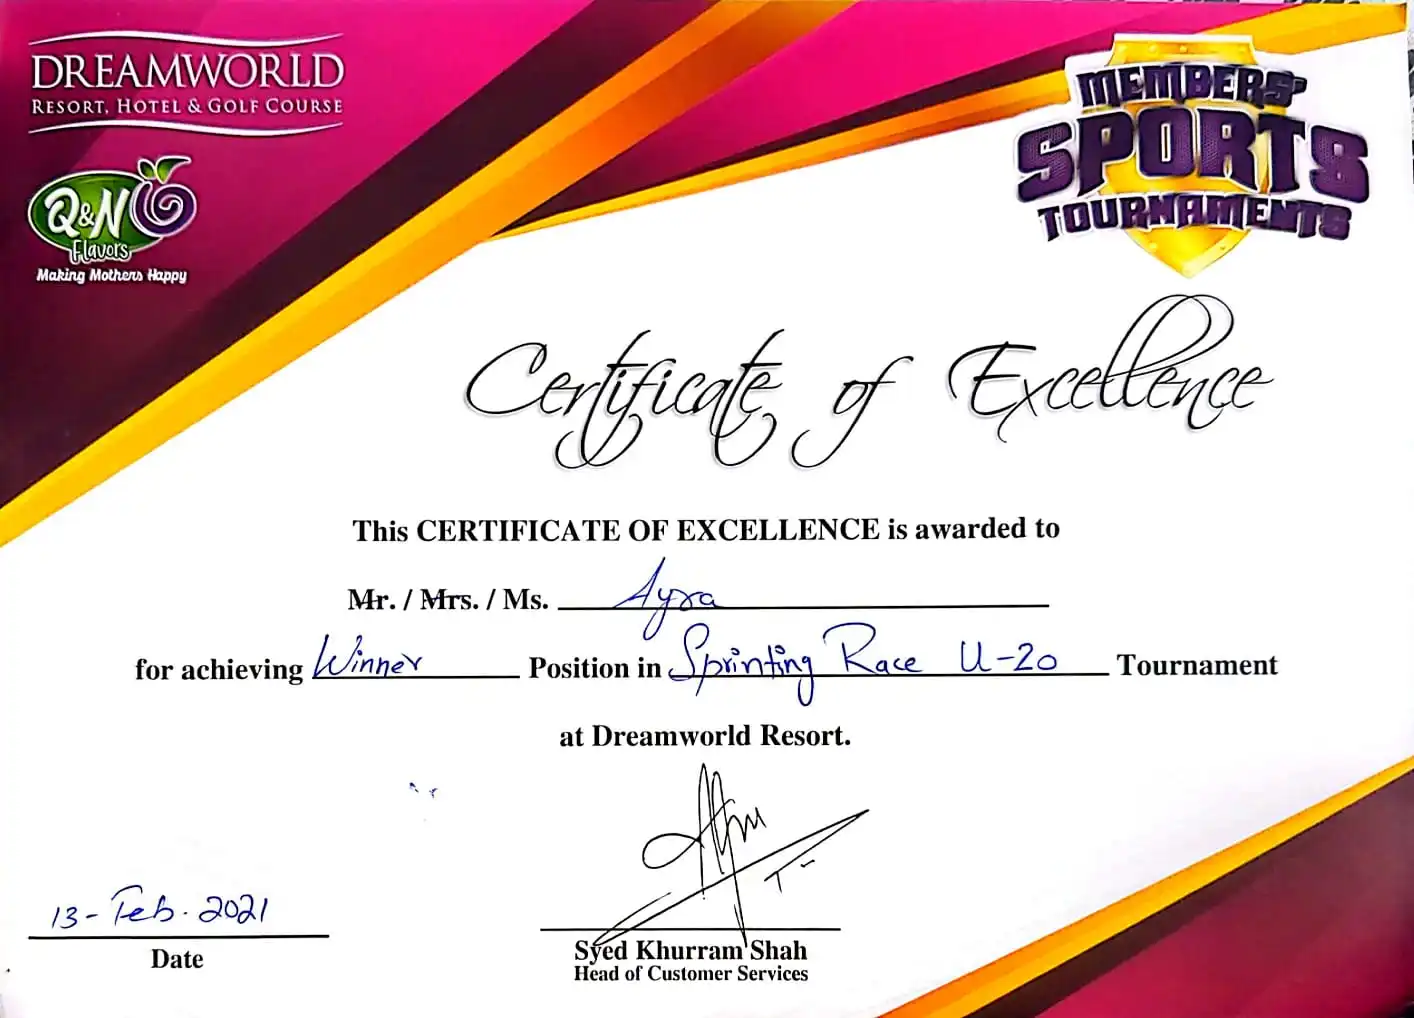 DREAMWORLD
RESORT, HOTEL & GOLF COURSE
Q&N
Flavors
Making Mothers Happy
MEMBERS'
SPORTS
TOURNAMENTS
Certificate of Excellence
This CERTIFICATE OF EXCELLENCE is awarded to
Mr. / Mrs. / Ms. Ayra
for achieving Winner Position in Sprinting Race U-20 Tournament
at Dreamworld Resort.
13-Feb.2021
Date
Syed Khurram Shah
Head of Customer Services